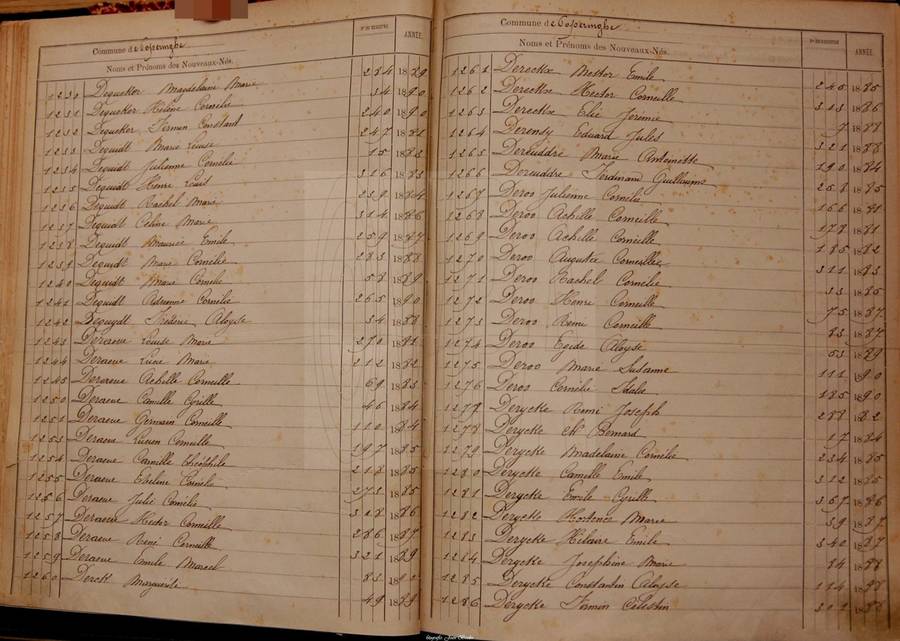 Commune de Poperinghe
Noms et Prénoms des Nouveaux-Nés.
ANNÉE.
1230 Dequeker Magdelaine Marie 284 1889
1231 Dequeker Hélène Cornelie 34 1890
1232 Dequeker Firmin Constant 240 1890
1233 Dequidt Marie Louise 247 1881
1234 Dequidt Julienne Cornelie 15 1883
1235 Dequidt Henri Louis 316 1883
1236 Dequidt Rachel Marie 239 1884
1237 Dequidt Celine Marie 314 1886
1238 Dequidt Maurice Emile 259 1887
1239 Dequidt Marie Cornelie 283 1888
1240 Dequidt Marie Cornelie 58 1889
1241 Dequidt Adrienne Cornelie 265 1890
1242 Dequydt Aloyse 34 1888
1243 Deraeve Louise Marie 270 1881
1244 Deraeve Lucie Marie 212 1882
1245 Deraeve Achille Corneille 69 1883
1250 Deraeve Camille Cyrille 46 1884
1251 Deraeve Germain Corneille 110 1884
1253 Deraeve Lucien Corneille 197 1885
1254 Deraeve Camille Théophile 218 1885
1255 Deraeve Cornelie 273 1885
1256 Deraeve Julie Cornelie 328 1886
1257 Deraeve Hector Corneille 286 1887
1258 Deraeve René Corneille 321 1889
1259 Deraeve Emile Marcel 83 1890
1260 Derck Marguerite 49 1889
Commune de Poperinghe
Noms et Prénoms des Nouveaux-Nés.
ANNÉE.
1261 Derecke Nestor Emile 245 1885
1262 Derecke Hector Corneille 313 1886
1263 Derecke Elie Jeremie 7 1888
1264 Derensy Eduard Jules 321 1888
1265 Dereuddre Marie Antoinette 190 1884
1266 Dereuddre Ferdinand Guillaume 258 1885
1267 Deroo Julienne Cornelie 166 1881
1268 Deroo Achille Corneille 178 1881
1269 Deroo Achille Corneille 185 1882
1270 Deroo Auguste Corneille 311 1883
1271 Deroo Rachel Cornelie 33 1885
1272 Deroo Henri Corneille 75 1887
1273 Deroo Remi Corneille 83 1887
1274 Deroo Egide Aloyse 53 1889
1275 Deroo Marie Susanne 111 1890
1276 Deroo Cornelie Idalie 185 1890
1277 Derycke Remi Joseph 288 1882
1278 Derycke Bernard 17 1884
1279 Derycke Madelaine Cornelie 234 1885
1280 Derycke Camille Emile 312 1885
1281 Derycke Emile Cyrille 357 1886
1282 Derycke Hortence Marie 39 1887
1283 Derycke Hilaire Emile 340 1887
1284 Derycke Josephine Marie 14 1888
1285 Derycke Constantin Aloyse 114 1888
1286 Derycke Firmin Célestin 301 1888